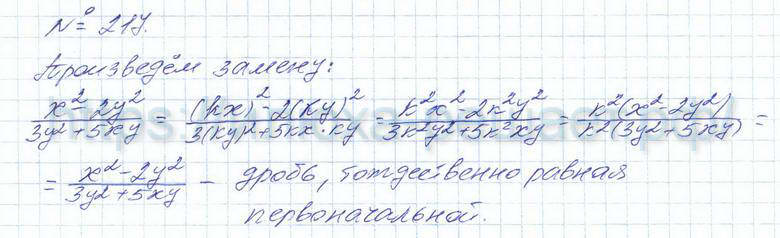 № 217.
Произведём замену:
x²-2y²/3y²+5xy = (kx)²-2(ky)²/3(ky)²+5kx·ky = k²x²-2k²y²/3k²y²+5k²xy = k²(x²-2y²)/k²(3y²+5xy) =
= x²-2y²/3y²+5xy – дробь, тождественно равная
первоначальной.